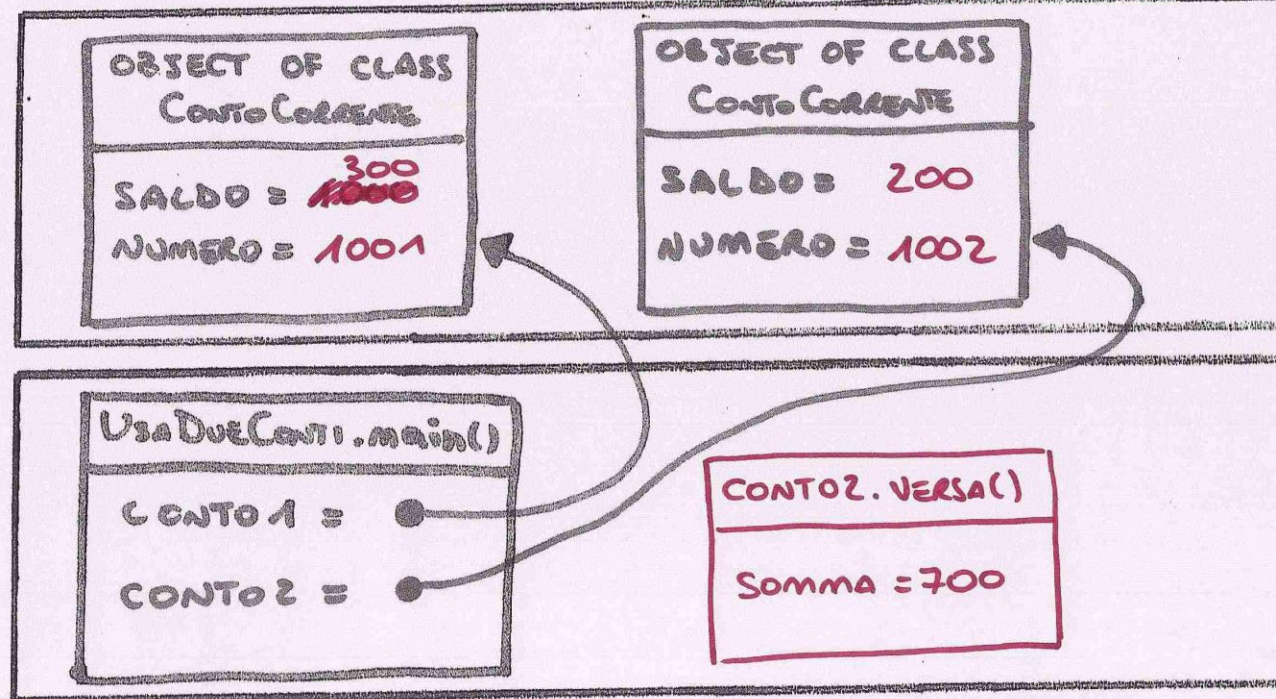 OBJECT OF CLASS
ContoCorrente
300
SALDO = 1000
NUMERO = 1001
OBJECT OF CLASS
ContoCorrente
SALDO = 200
NUMERO = 1002
UsaDueConti.main()
CONTO1 =
CONTO2 =
CONTO2.VERSA()
SOMMA = 700